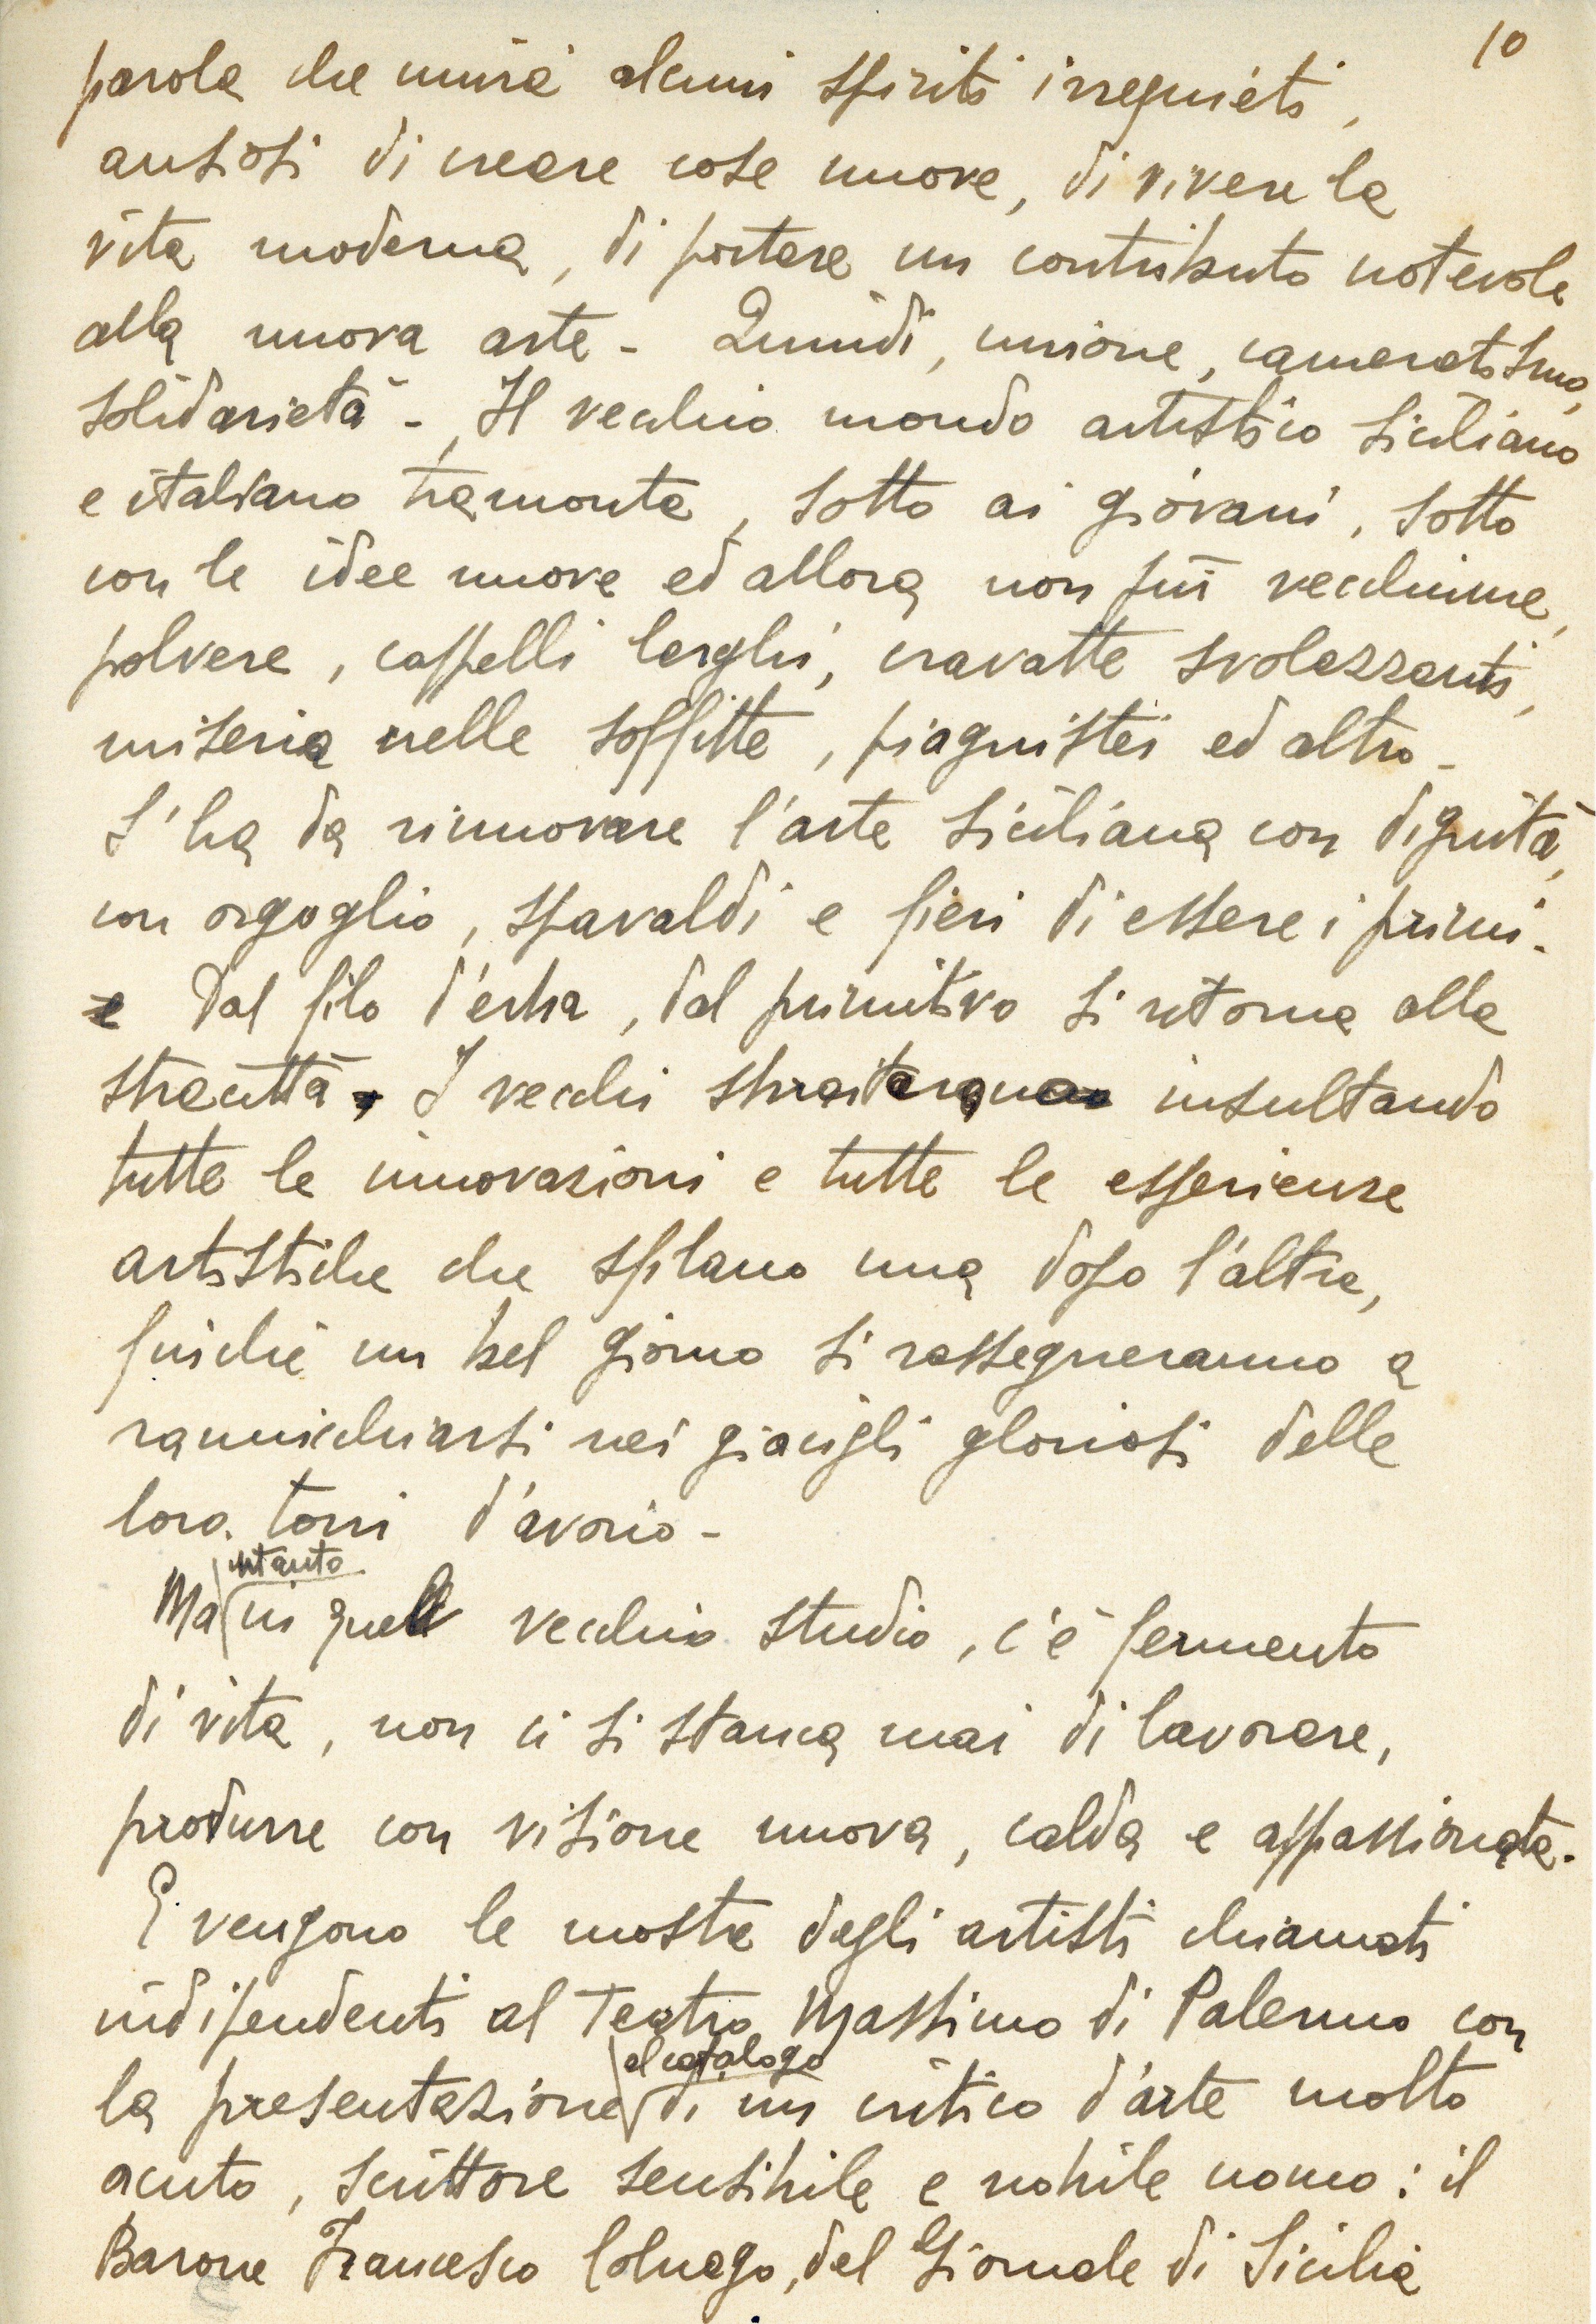 10
parola che unirà alcuni spiriti irrequieti,
ansiosi di creare cose nuove, di vivere la
vita moderna, di portare un contributo notevole
alla nuova arte - Quindi, unione, cameratismo,
solidarietà - Il vecchio mondo artistico siciliano
e italiano tramonta, sotto ai giovani, sotto
con le idee nuove ed allora non più vecchiume,
polvere, cappelli larghi, cravatte svolazzanti,
miseria nelle soffitte, piagnistei ed altro -
S'ha da rinnovare l'arte siciliana con dignità,
con orgoglio, spavaldi e fieri di essere i primi.
e Dal filo d'erba, dal primitivo si ritorna alla
stracittà. I vecchi insultando
tutte le innovazioni e tutte le esperienze
artistiche che sfilano una dopo l'altra,
finché un bel giorno si rassegneranno a
rannicchiarsi nei giacigli gloriosi delle
loro torri d'avorio -
intanto
Ma in quel vecchio studio, c'è fermento
di vita, non ci si stanca mai di lavorare,
produrre con visione nuova, calda e appassionata.
E vengono le mostre degli artisti chiamati
indipendenti al Teatro Massimo di Palermo con
al catalogo
la presentazione di un critico d'arte molto
acuto, scrittore sensibile e nobile uomo: il
Barone Francesco Colnago, del Giornale di Sicilia